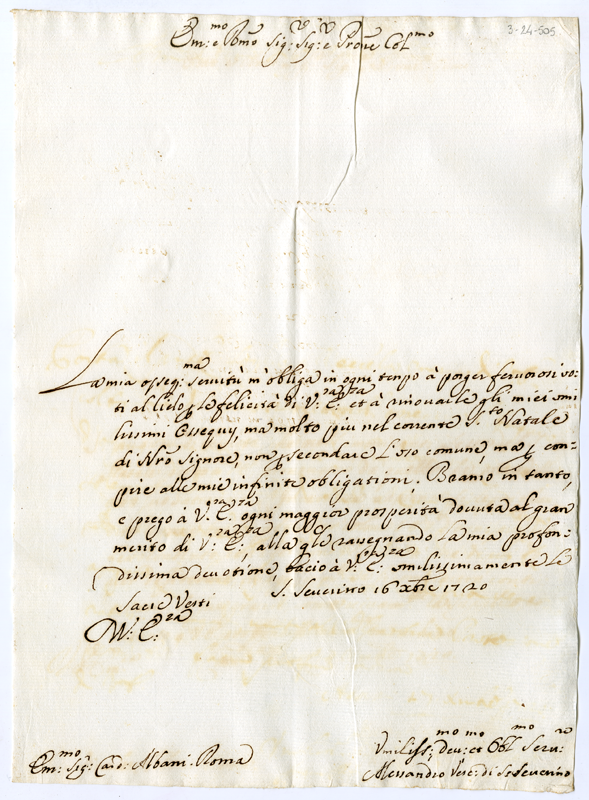 3-24-505
Em:mo e Rmo Sig:r Sig:r e Prone Colmo
La mia osseq:ma servitù m'obliga in ogni tempo à porger fervorosi vo-
ti al Cielo p le felicità di V:ra E:za et à rinovarle gli miei umi
lissimi Essequij, ma molto piu nel corrente S.to Natale
di Nro Signore, non p secondare l'uso comune, ma p com-
pire alle mie infinite obligationi. Bramo in tanto,
e prego à V:ra E:za ogni maggior prosperità dovuta al gran
merito di V:ra E:za, alla qle rassegnando la mia profon-
dissima devotione, bacio à V:ra E:za umilissimamente le
Sacre Vesti S. Severino 16 Xbre 1720
Di V: E:za
Em:mo Sig: Card: Albani. Roma
Umiliss:mo Dev:mo et Obl:mo Serv:re
Alessandro Vesc: di S. Severino